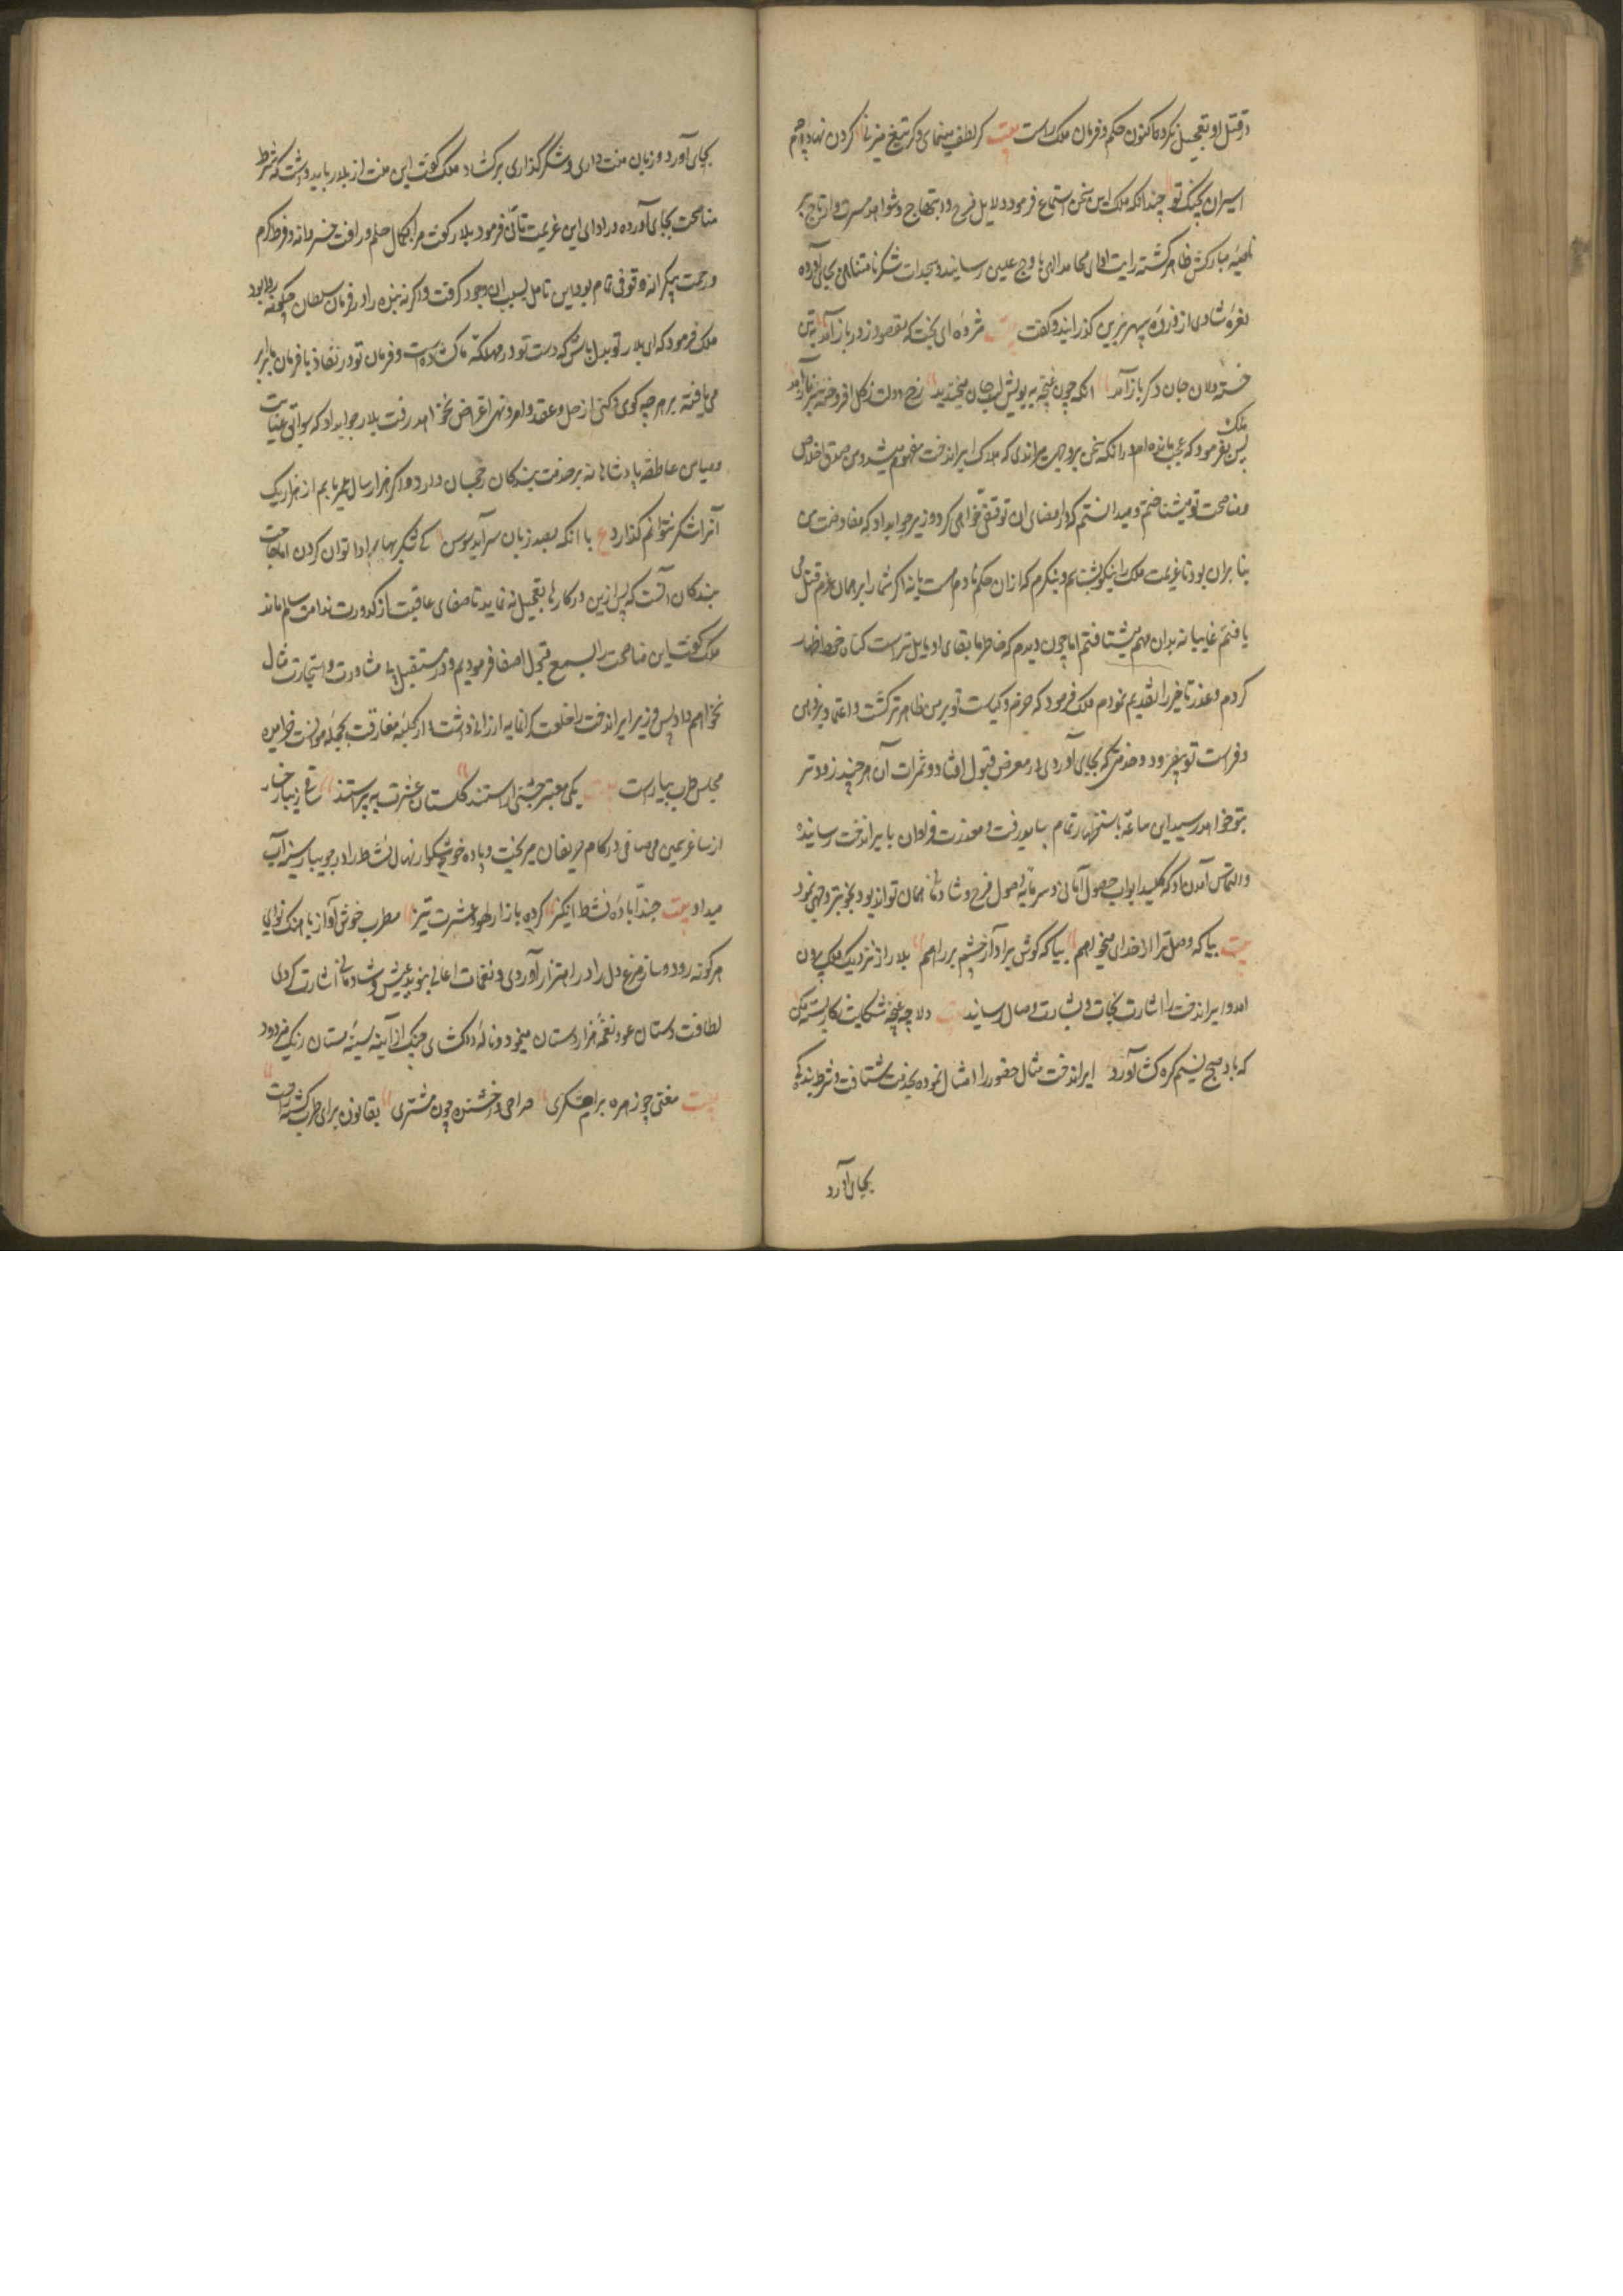 در قتل او تعجیل نکرد و اکنون حکم و فرمان ملک راست بیت کر لطف مینمای و کر تیغ میزنی کردن نهاده‌ایم
اسیران بجنک تو چندانکه ملک این سخن استماع فرمود دلایل فرح و ابتهاج و شواهد مسرت و ارتیاح بر
ناصیهٔ مبارکش ظاهر کشته رایت ادای محامد الهی باوج علیین رسانید و سجدات شکر نامتناهی بجای آورده
نعرهٔ شادی از ذروهٔ سپهر برین کذرانید و کفت بیت مژده ای بخت که مقصود ز در باز آمد بتن
خسته دلان جان دکر باز آمد انکه چون غنچه به بویش لب جان میخندید رخ دولت ز کل افروخته‌تر باز آمد
پس ملک بفرمود که عجب مانده‌ام در انکه سخن بر وجهی میراندی که هلاک ایراندخت مفهوم میشد و من صدق اخلاص
و مناصحت تو میشناختم و میدانستم که در امضای ان توقفی خواهی کرد وزیر جواب داد که مفاوضت من
بنا بران بود تا عزیمت ملک را نیکو بشناسم و بنکرم که از ان حکم نادم هست یا نه اکر شما را بر همان عزم قتل می
یافتم غایبانه بدان مهم میشتافتم اما چون دیدم که خاطر ما ببقای او مایل‌تر است کتمان خود اظهار
کردم و عذر تاخیر را تقدیم نمودم ملک فرمود که حزم و کیاست تو بر من ظاهرتر کشت و اعتماد بر ذهن
و فراست تو بیفزود و خدمتی که بجای آوردی در معرض قبول افتاد و ثمرات آن هر چند زودتر
بتو خواهد رسید این ساعة باستظهار تمام بباید رفت و معذرت فراوان بایراندخت رسانیده
و التماس آمدن او که کلید ابواب حصول آمانی و سرمایهٔ وصول فرح و شادمانی همان تواند بود بخوبتر وجهی نمود
بیت بیا که وصل ترا از خدای میخواهم بیا که کوش بر آواز و چشم بر راهم بلار از نزدیک ملک بیرون
امد و ایراندخت را اشارت نجات و بشارت وصال رسانید بیت دلا چو غنچه شکایت ز کار بسته مکن
که باد صبح نسیم کره کشا آورد ایراندخت مثال حضور را امتثال نموده بخدمت شتافت و شرط بندکی
بجای آورد
بجای آورد و زبان منت داری و شکر کذاری برکشاد ملک کفت این منت از بلار باید داشت که شرط
مناصحت بجای آورده در ادای این عزیمت تأنی فرمود بلار کفت مرا بکمال حلم و رافت خسروانه و فرط کرم
و رحمت بیکرانه وثوقی تمام بود این تامل بسبب ان وجود کرفت و اکرنه بنده را در فرمان سلطان چکونه روا بود
ملک فرمود که ای بلار تو بدل باش که دست تو در مملکت ما کشاده است و فرمان تو در نفاذ با فرمان ما برابر
می یافته بر هر چه کوی و کنی از حل و عقد و امر و نهی اعتراض نخواهد رفت بلار جواب داد که سوابق عنایت
و میامن عاطفت پادشاهانه بر خدمت بندکان رجحان دارد و اکر هزار سال عمر یابم از هزار یک
آنرا شکر نتوانم کذارد ع با انکه بصد زبان سرآید سوسن کی شکر بهار را ادا توان کردن اما حاجت
بندکان آنست که پس ازین در کارها تعجیل نه نماید تا صفای عاقبت از کدورت ندامت سالم ماند
ملک کفت این مناصحت را بسمع قبول اصغا فرمودیم و در مستقبل بی مشاورت و استجازت مثال
نخواهم داد پس وزیر ایراندخت را خلعت کرانمایه ارزانی داشت از کلبهٔ مفارقت بحجلهٔ مواصلت خرامیده
مجلس طرب بیاراست بیت یکی معتبر جشنی آراستند کلستان عشرت بپیراستند ساقی زیبا رخسار
از ساغر یمین می صافی در کام حریفان میریخت و باده خوشکوار نهال نشاط را در جویبار سینه آب
میداد بیت جندا بادهٔ نشط انکیز کرده بازار لهو و عشرت تیز مطرب خوش آواز با هنک نوای
هر کونه رود و ساز مرغ دل را در اهتزاز آوردی و نغمات اغانی بنوید عیش و شادمانی اشارت کردی
لطافت دستان عود نغمهٔ هزار دستان مینمود و نالهٔ دلکشای چنک از آینه سینهٔ مستان زنک میزدود
بیت مغنی چو زهره برامشکری صراحی درخشنده چون مشتری بقانون برای طرب کشته راست